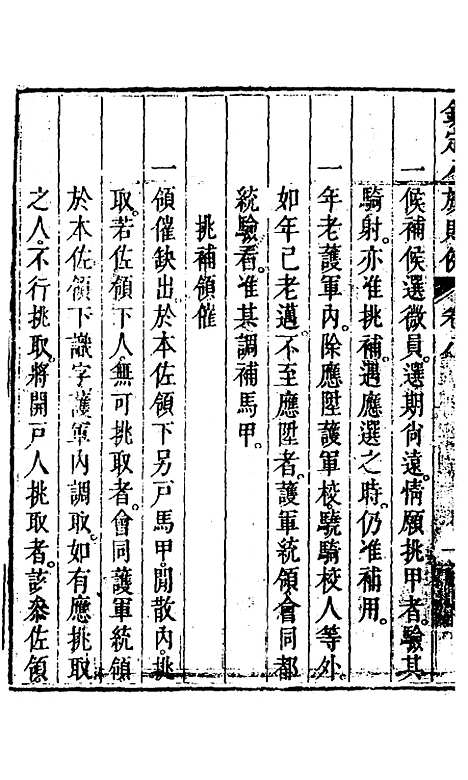 欽定八旗則例 卷八
一候補候選微員選期尚遠情願挑甲者驗其
騎射亦准挑補遇應選之時仍准補用
一年老護軍內除應陞護軍校驍騎校人等外
如年已老邁不至應陞者護軍統領會同都
統驗看准其調補馬甲
挑補領催
一領催缺出於本佐領下另戶馬甲閒散內挑
取若佐領下人無可挑取者會同護軍統領
於本佐領下識字護軍內調取如有應挑取
之人不行挑取將開戶人挑取者該叅佐領